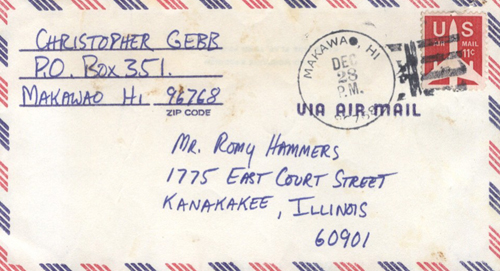 CHRISTOPHER GEBB
P.O. BOX 351.
MAKAWAO HI 96768
ZIP CODE
MAKAWAO, HI
DEC
28
P.M.
US
AIR MAIL
11¢
VIA AIR MAIL
MR. ROMY HAMMERS
1775 EAST COURT STREET
KANAKAKEE, ILLINOIS
60901